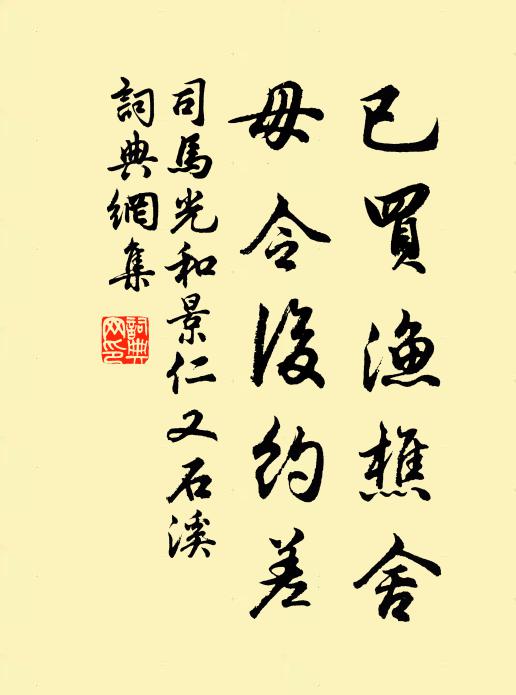 已買漁樵舍
毋令後約差
司馬光和景仁又石溪
詞典網集
詞典網印